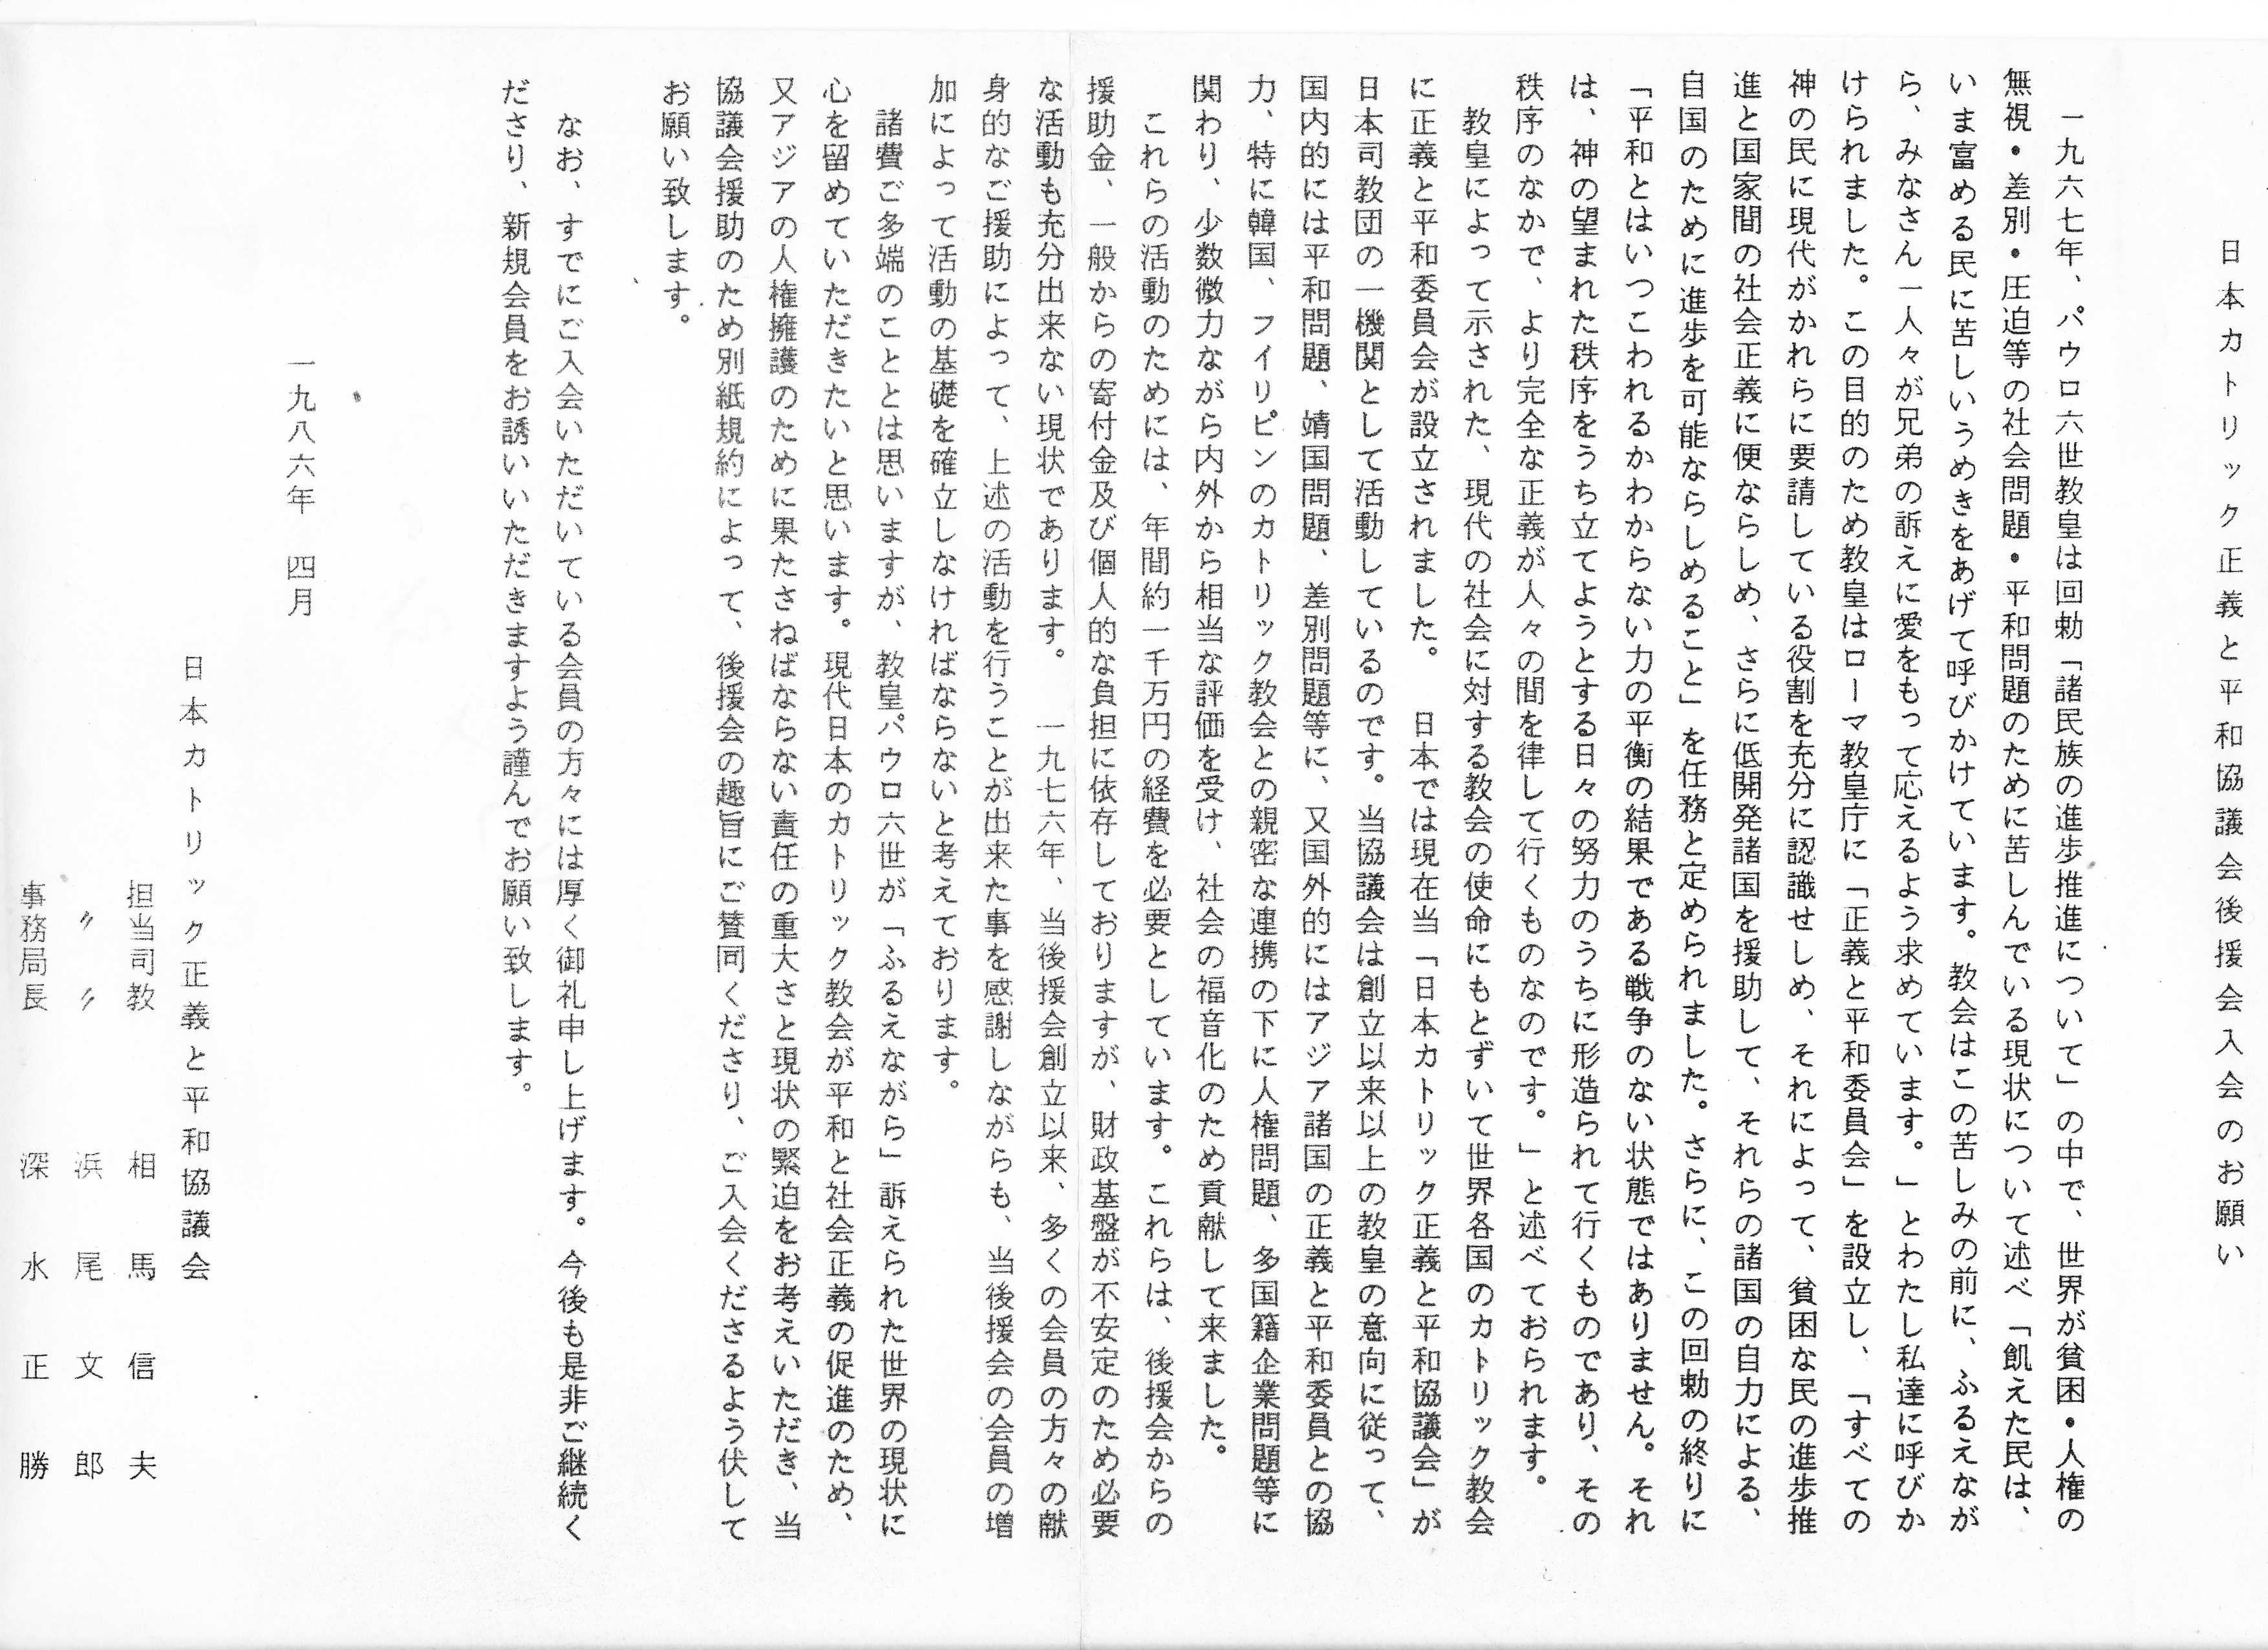 日本カトリック正義と平和協議会後援会入会のお願い
一九六七年、パウロ六世教皇は回勅「諸民族の進歩推進について」の中で、世界が貧困・人権の
無視・差別・圧迫等の社会問題・平和問題のために苦しんでいる現状について述べ「飢えた民は、
いま富める民に苦しいうめきをあげて呼びかけています。教会はこの苦しみの前に、ふるえなが
ら、みなさん一人々が兄弟の訴えに愛をもって応えるよう求めています。」とわたし私達に呼びか
けられました。この目的のため教皇はローマ教皇庁に「正義と平和委員会」を設立し、「すべての
神の民に現代がかれらに要請している役割を充分に認識せしめ、それによって、貧困な民の進歩推
進と国家間の社会正義に便ならしめ、さらに低開発諸国を援助して、それらの諸国の自力による、
自国のために進歩を可能ならしめること」を任務と定められました。さらに、この回勅の終りに
「平和とはいつこわれるかわからない力の平衡の結果である戦争のない状態ではありません。それ
は、神の望まれた秩序をうち立てようとする日々の努力のうちに形造られて行くものであり、その
秩序のなかで、より完全な正義が人々の間を律して行くものなのです。」と述べておられます。
教皇によって示された、現代の社会に対する教会の使命にもとずいて世界各国のカトリック教会
に正義と平和委員会が設立されました。　日本では現在当「日本カトリック正義と平和協議会」が
日本司教団の一機関として活動しているのです。当協議会は創立以来以上の教皇の意向に従って、
国内的には平和問題、靖国問題、差別問題等に、又国外的にはアジア諸国の正義と平和委員との協
力、特に韓国、フイリピンのカトリック教会との親密な連携の下に人権問題、多国籍企業問題等に
関わり、少数微力ながら内外から相当な評価を受け、社会の福音化のため貢献して来ました。
これらの活動のためには、年間約一千万円の経費を必要としています。これらは、後援会からの
援助金、一般からの寄付金及び個人的な負担に依存しておりますが、財政基盤が不安定のため必要
な活動も充分出来ない現状であります。　一九七六年、当後援会創立以来、多くの会員の方々の献
身的なご援助によって、上述の活動を行うことが出来た事を感謝しながらも、当後援会の会員の増
加によって活動の基礎を確立しなければならないと考えております。
諸費ご多端のこととは思いますが、教皇パウロ六世が「ふるえながら」訴えられた世界の現状に
心を留めていただきたいと思います。現代日本のカトリック教会が平和と社会正義の促進のため、
又アジアの人権擁護のために果たさねばならない責任の重大さと現状の緊迫をお考えいただき、当
協議会援助のため別紙規約によって、後援会の趣旨にご賛同くださり、ご入会くださるよう伏して
お願い致します。
なお、すでにご入会いただいている会員の方々には厚く御礼申し上げます。今後も是非ご継続く
ださり、新規会員をお誘いいただきますよう謹んでお願い致します。
一九八六年　四月
日本カトリック正義と平和協議会
担当司教　相馬信夫
〃　〃　浜尾文郎
事務局長　深水正勝